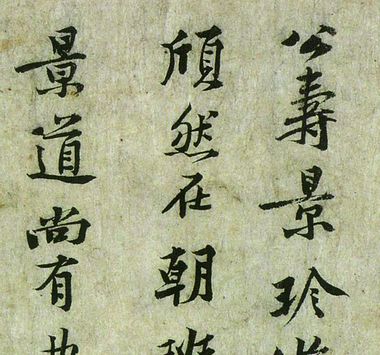 公壽景珍
頎然在朝班
景道尚有